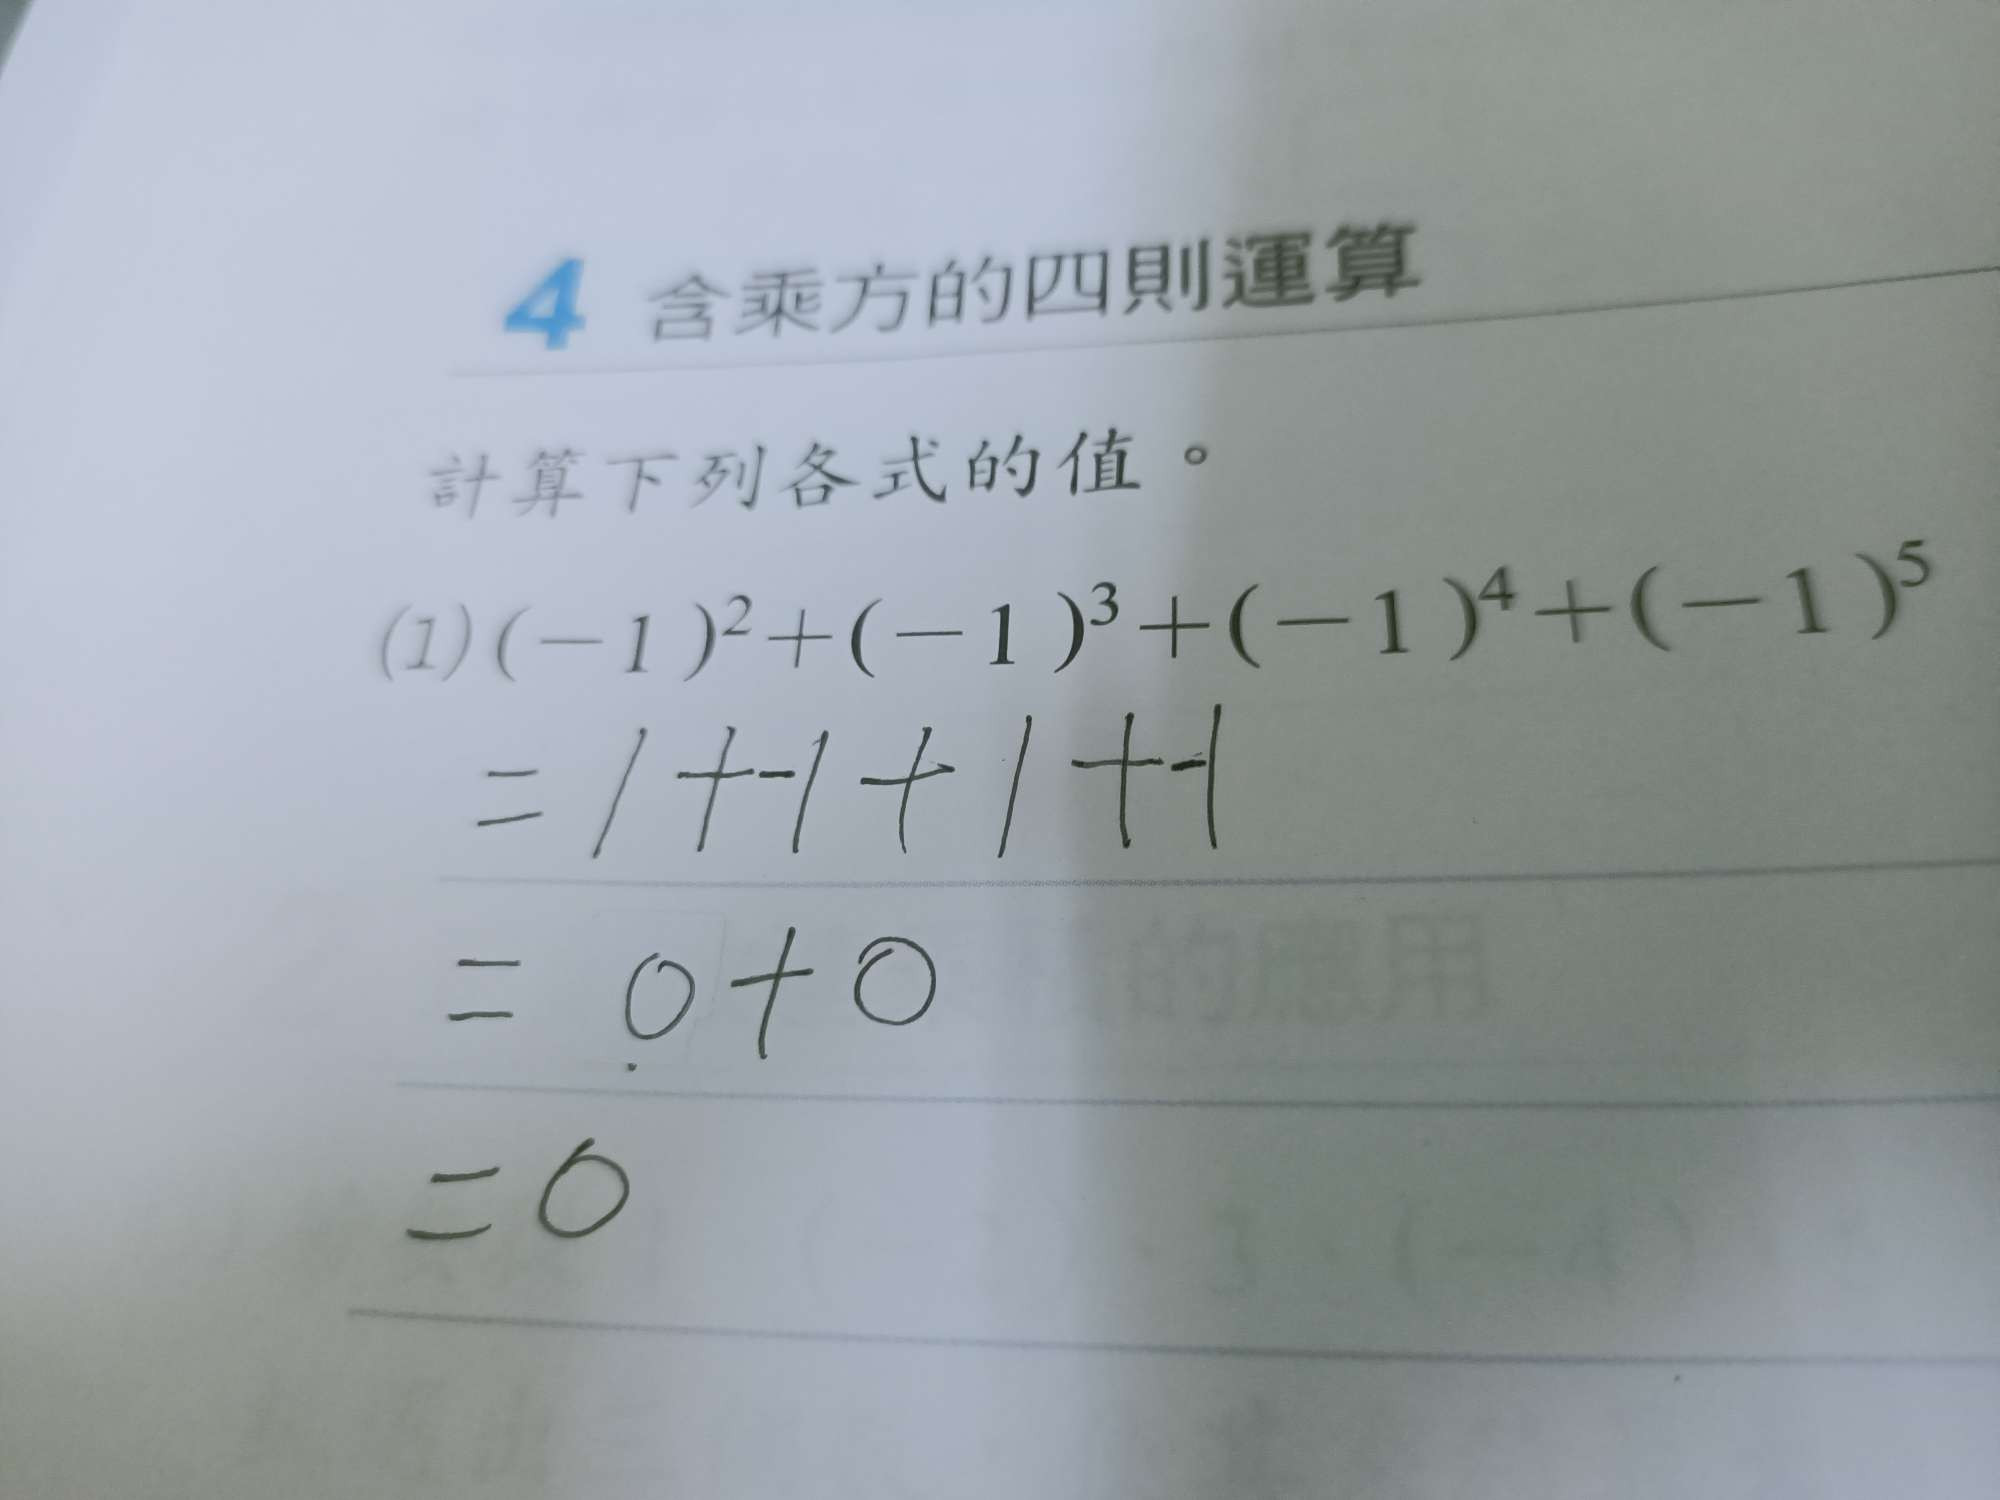 4 含乘方的四則運算
計算下列各式的值。
(1)(-1)²+(-1)³+(-1)⁴+(-1)⁵
= 1+-1+1+-1
= 0+0
=0
的應用